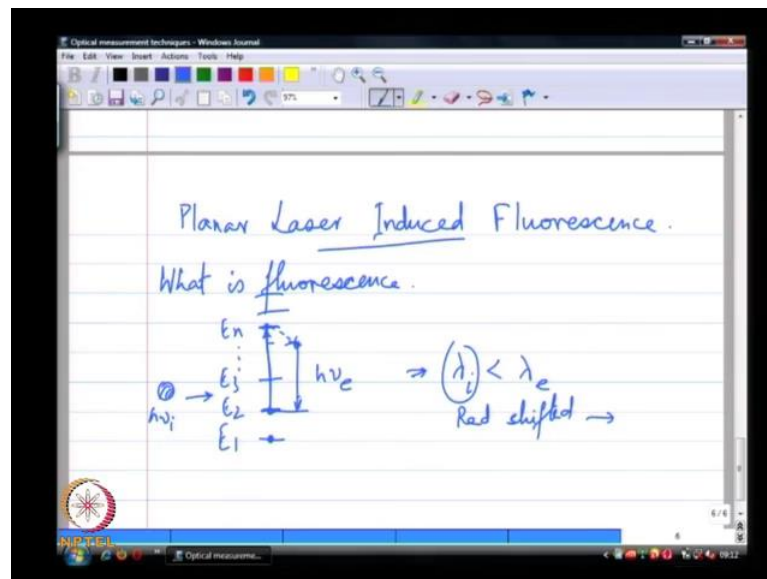 Optical measurement techniques - Windows Journal
File Edit View Insert Actions Tools Help
B I
97%
Planar Laser Induced Fluorescence.
What is fluorescence.
En
E3 hνe ⇒ λi < λe
hνi → E2 Red shifted →
E1
6/6
6
NPTEL
Optical measureme...
09:12